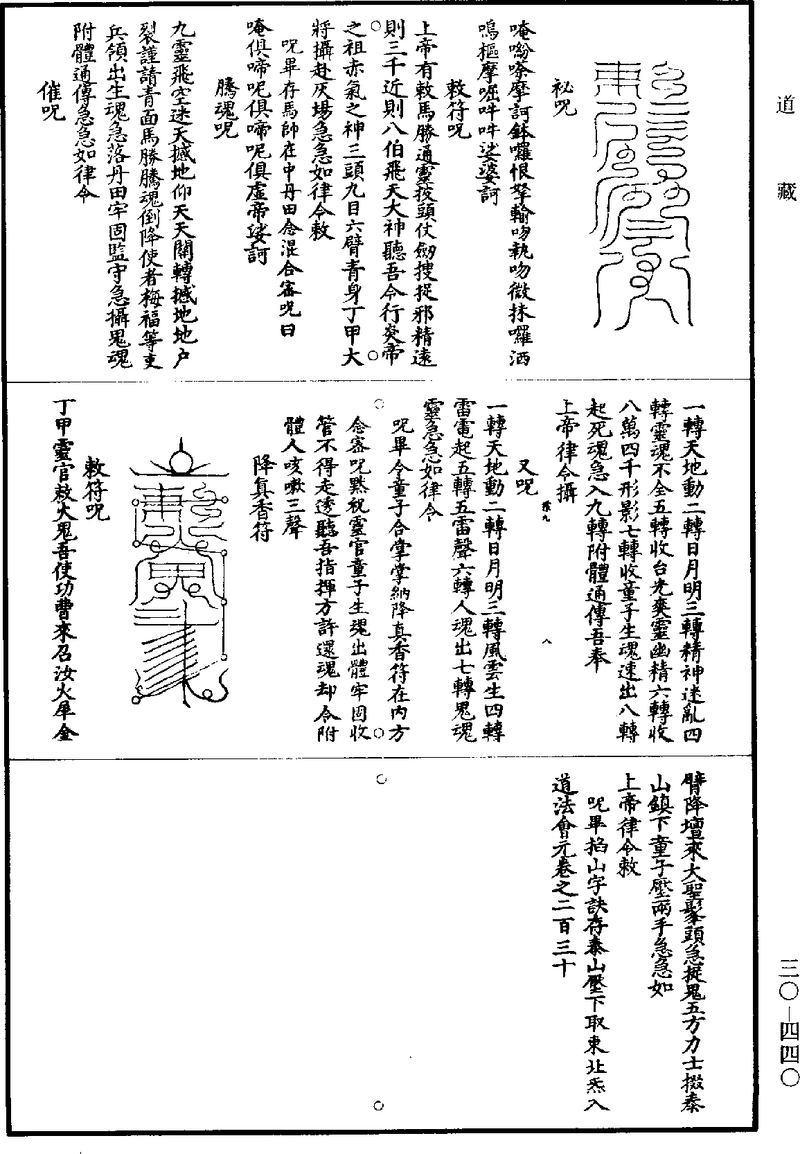 道藏
祕呪
唵吩嗏摩訶鉢囉恨孥輸吻執吻微抹囉洒
嗚樞摩啒吽吽娑婆訶
敕符呪
上帝有敕馬勝通靈披頭仗劒搜捉邪精遠
則三千近則八伯飛天大神聽吾令行炎帝
之祖赤氣之神三頭九目六臂青身丁甲大
將攝赴灰場急急如律令敕
呪畢存馬帥在中丹田念混合密呪曰
唵俱啼呢俱啼呢俱盧帝娑訶
騰魂呪
九靈飛空迷天撼地仰天天關轉撼地地户
裂謹請青面馬勝騰魂倒降使者梅福等吏
兵領出生魂急落丹田牢固監守急攝鬼魂
附體通傳急急如律令
催呪
一轉天地動二轉日月明三轉精神迷亂四
轉靈魂不全五轉收台光爽靈幽精六轉收
八萬四千形影七轉收童子生魂速出八轉
起死魂急入九轉附體通傳吾奉
上帝律令攝
又呪
一轉天地動二轉日月明三轉風雲生四轉
雷電起五轉五雷聲六轉人魂出七轉鬼魂
靈急急如律令
呪畢令童子合掌掌納降真香符在内方
念密呪默祝靈官童子生魂出體牢固收
管不得走透聽吾指揮方許還魂却令附
體人咳嗽三聲
降真香符
敕符呪
丁甲靈官赦大鬼吾使功曹來召汝火犀金
臂降壇來大聖髼頭急捉鬼五方力士掇泰
山鎮下童子壓兩手急急如
上帝律令敕
呪畢掐山字訣存泰山壓下取東北炁入
道法會元卷之二百三十
三〇—四四〇